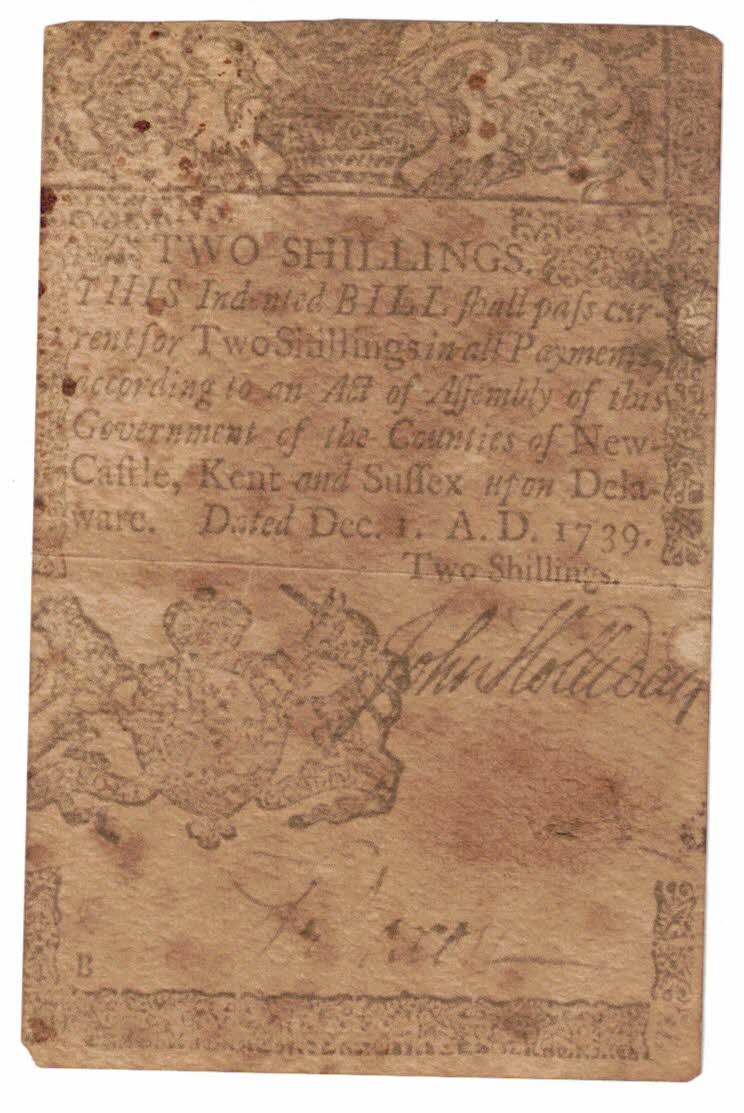 TWO SHILLINGS.
THIS Indented BILL ſhall paſs cur-
rent for Two Shillings in all Payments,
according to an Act of Aſſembly of this
Government of the Counties of New-
Caſtle, Kent and Suſſex upon Dela-
ware. Dated Dec. 1. A. D. 1739.
Two Shillings.
John Holliday
B